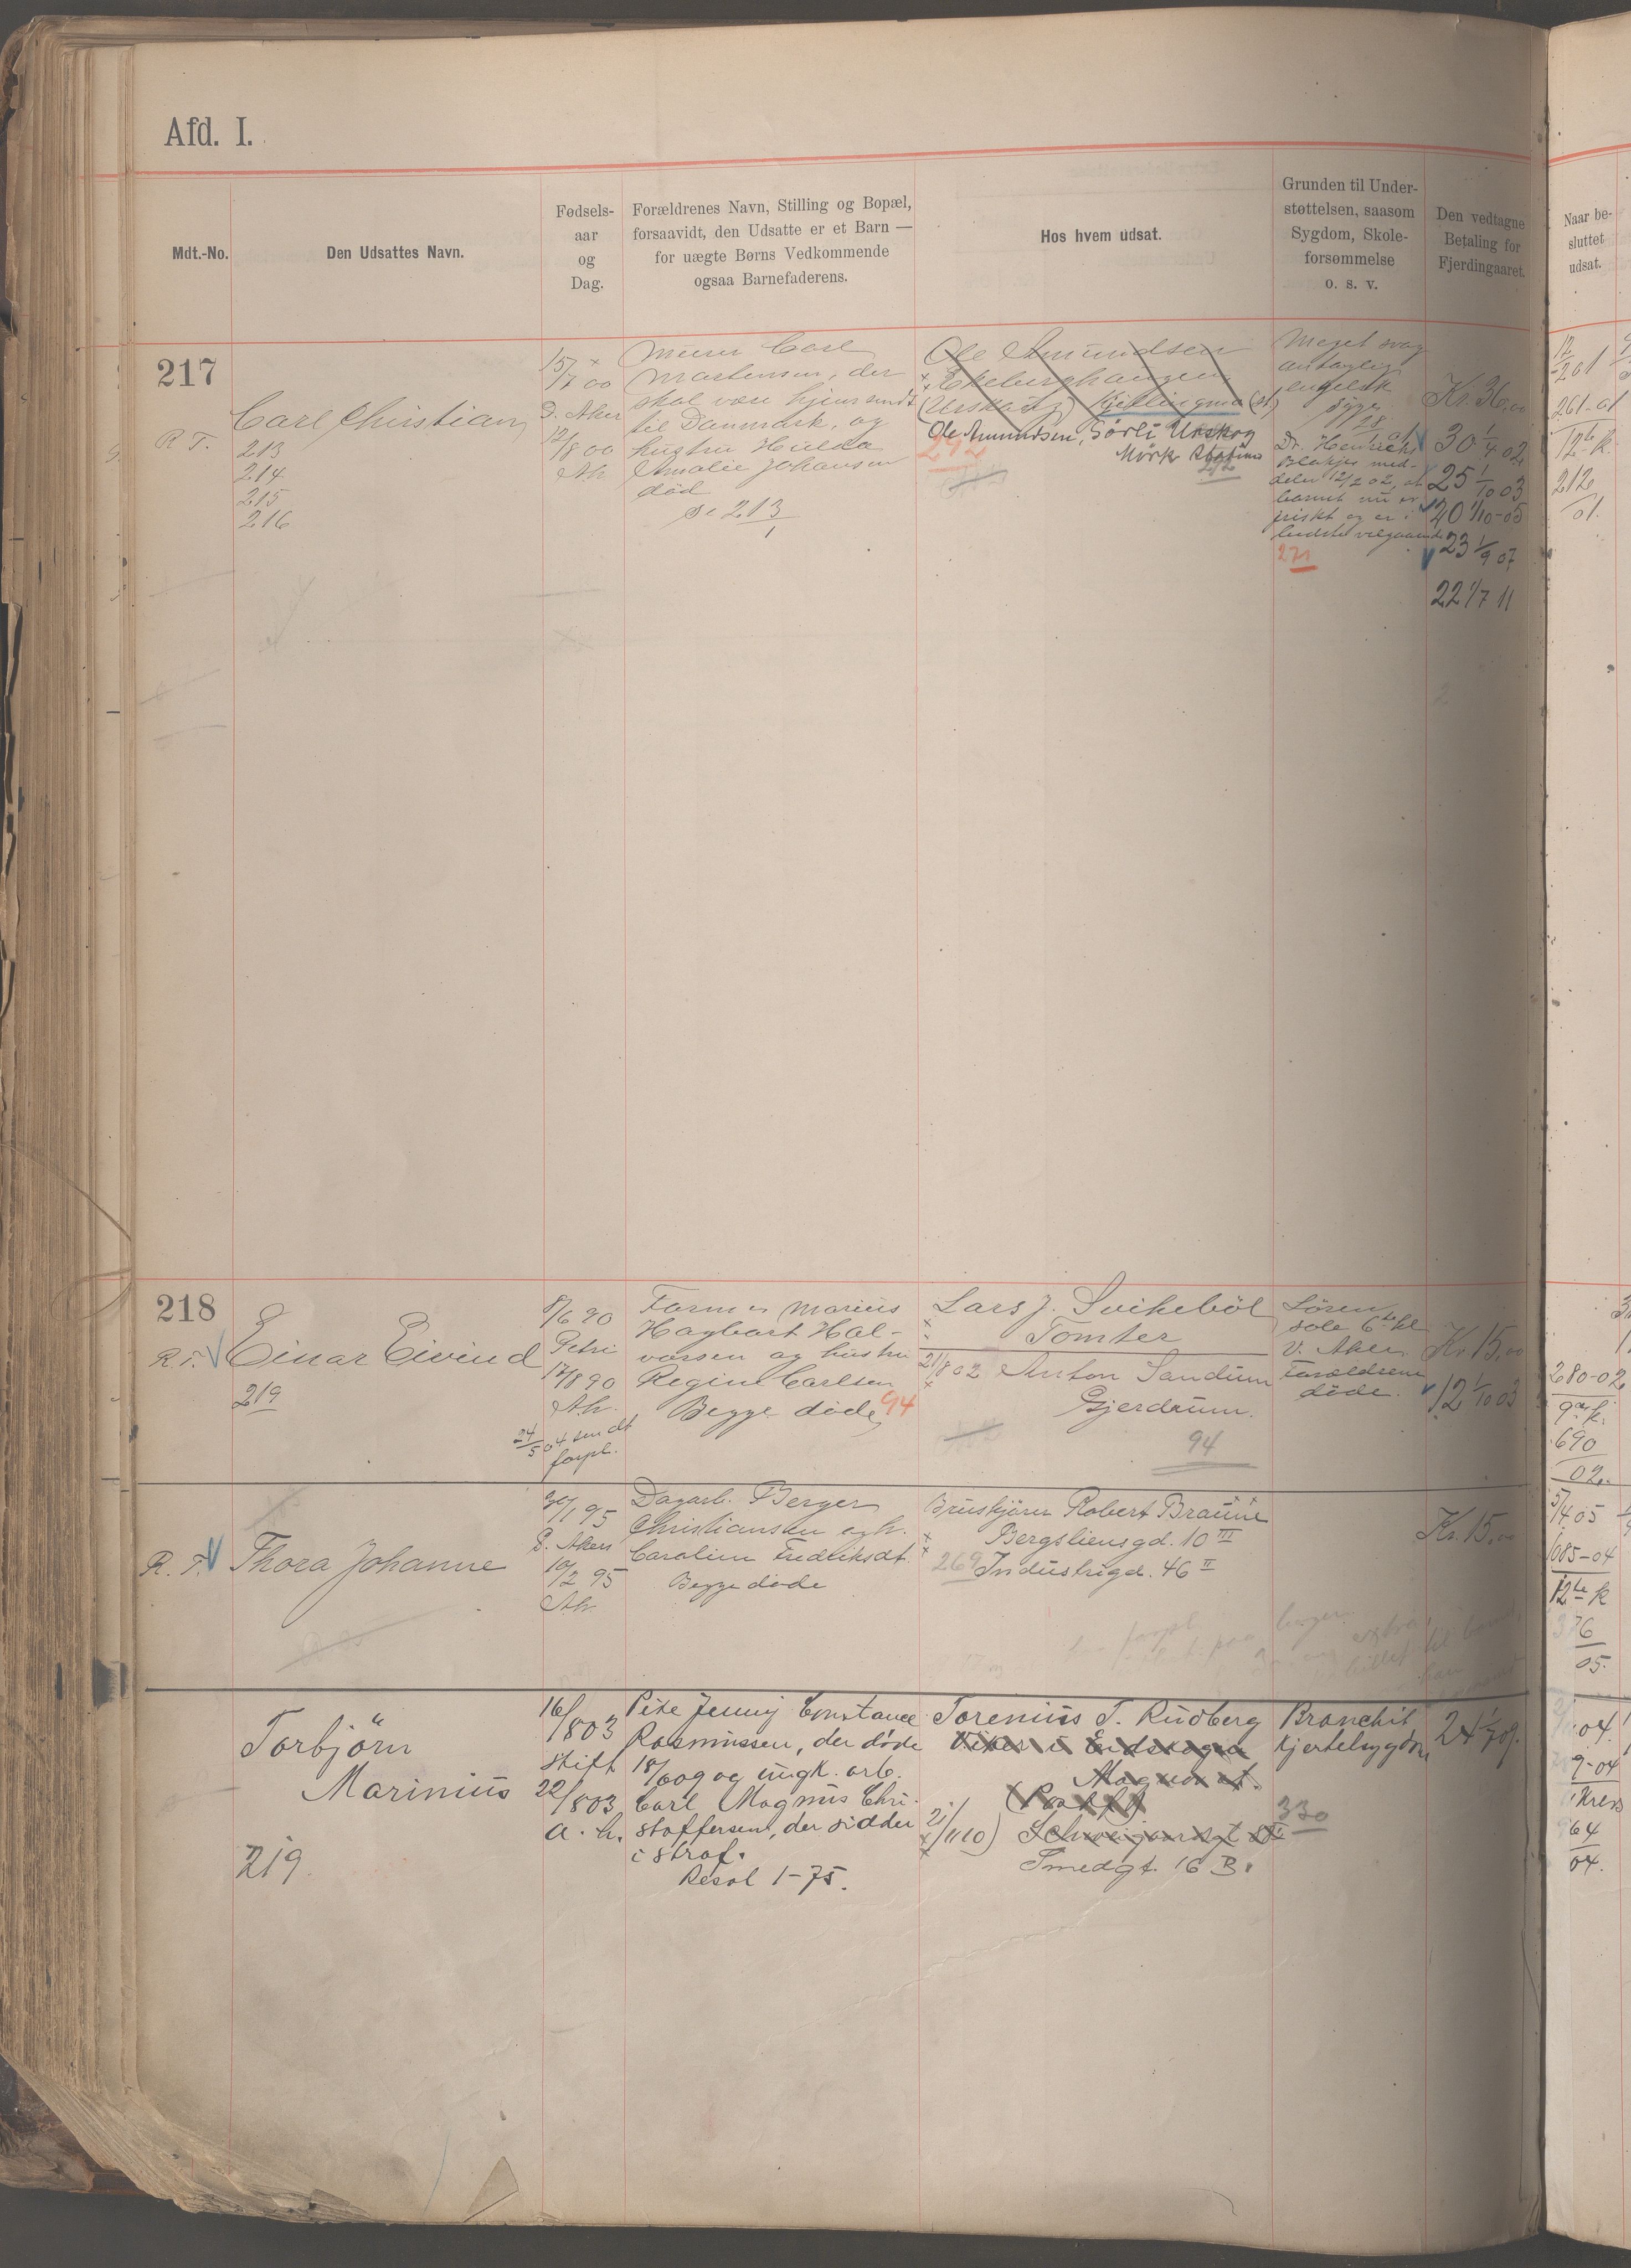 Afd. I.
Mdt.-No.
Den Udsattes Navn.
Fødsels-
aar
og
Dag.
Forældrenes Navn, Stilling og Bopæl,
forsaavidt, den Udsatte er et Barn —
for uægte Børns Vedkommende
ogsaa Barnefaderens.
Hos hvem udsat.
Grunden til Under-
støttelsen, saasom
Sygdom, Skole-
forsømmelse
o. s. v.
Den vedtagne
Betaling for
Fjerdingaaret.
Naar be-
sluttet
udsat.
217
R T.
Carl Christian
213
214
215
216
15/7 00
Ø. Aker
12/8 00
Ah
Murer Carl
Martensen, der
skal være hjemsendt
til Danmark, og
hustru Hulda
Amalie Johansen
død
se 213
1
Ole Amundsen
Ekeberghaugen
(Urskog)
Ole Amundsen, Sörli Urskog
Mörk Station
292
Meget svag
antagelig
engelsk
syge
Dr. Henrichs
Blakjer med-
deler 12/2 02, at
barnet nu er
friskt og er i
bedste velgaaende
271
Kr. 36,00
30 1/4 02
25 1/10 03
20 1/10-05
23 1/9 07
22 1/7 11
261-01
12te k.
212
01.
218
R. T.
Einar Eivind
219
8/6 90
Petri
17/8 90
Ah.
24/5 04 sendt
forpl.
Former Marius
Hagbart Hal-
vorsen og hustru
Regine Carlsen
Begge døde
94
Lars J. Svikeböl
Tomter
21/8 02 Anton Sandum
Gjerdrum.
94
Sören
sole 6te kl
V. Aker.
Foræeldrene
døde.
Kr. 15,00
12 1/10 03
280-02
9de k.
690
02.
R. T.
Thora Johanne
30/1 95
Ø. Aker
10/2 95
Ah
Dagarb. Berger
Christiansen og h.
Caroline Fredriksdt.
Begge døde
Bruskjörer Robert Braune
Bergsliensgd. 10 III
269 Industrigd. 46 II
Kr. 15,00
5/4 05
1085-04
12te k
376
05.
Torbjörn
Marinius
219.
16/8 03
Stift
22/8 03
a. h.
Pike Jenny Constance
Rasmussen, der døde
18/6 09 og ungk. arb.
Carl Magnus Chri-
stoffersen, der sidder
i straf.
Resol 1-75.
Torenius T. Rudberg
Viker i Eidskogen
Magnor st.
21/11 10) Schweigaardsgt
Smedgt. 16 B.
330
Bronchit
Kjertelsygdom
24 1/7 09.
04.
9-04
64
04.